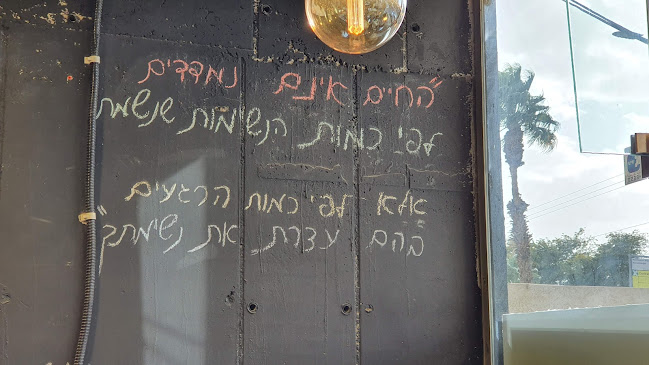 "החיים אינם נמדדים
לפי כמות הנשימות שנשמת
אלא לפי כמות הרגעים
בהם עצרת את נשימתך"